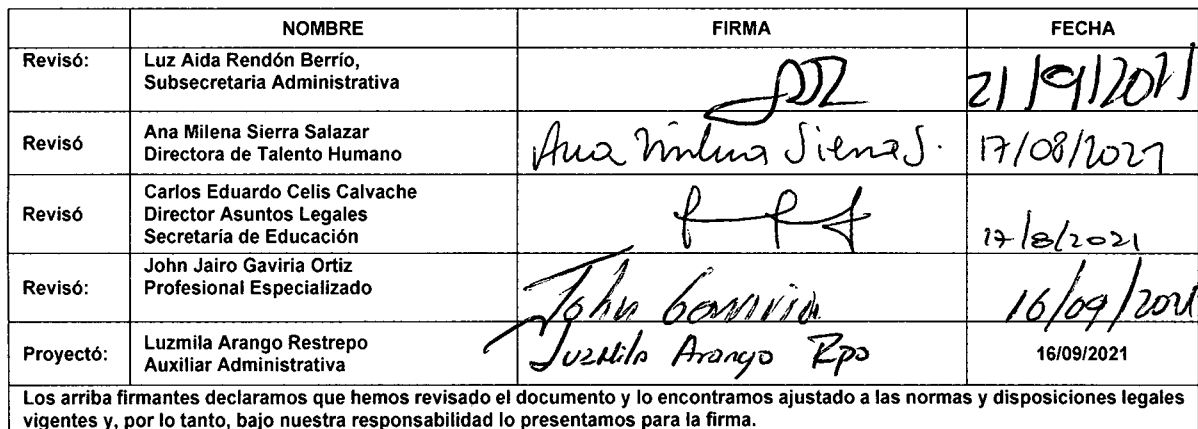 NOMBRE FIRMA FECHA
Revisó: Luz Aida Rendón Berrío,
Subsecretaria Administrativa
21/9/2021
Revisó Ana Milena Sierra Salazar
Directora de Talento Humano
Ana Milena Sierra S. 17/08/2021
Revisó Carlos Eduardo Celis Calvache
Director Asuntos Legales
Secretaría de Educación
17/8/2021
Revisó: John Jairo Gaviria Ortiz
Profesional Especializado
John Gaviria 16/09/2021
Proyectó: Luzmila Arango Restrepo
Auxiliar Administrativa
Luzmila Arango Rpo 16/09/2021
Los arriba firmantes declaramos que hemos revisado el documento y lo encontramos ajustado a las normas y disposiciones legales
vigentes y, por lo tanto, bajo nuestra responsabilidad lo presentamos para la firma.